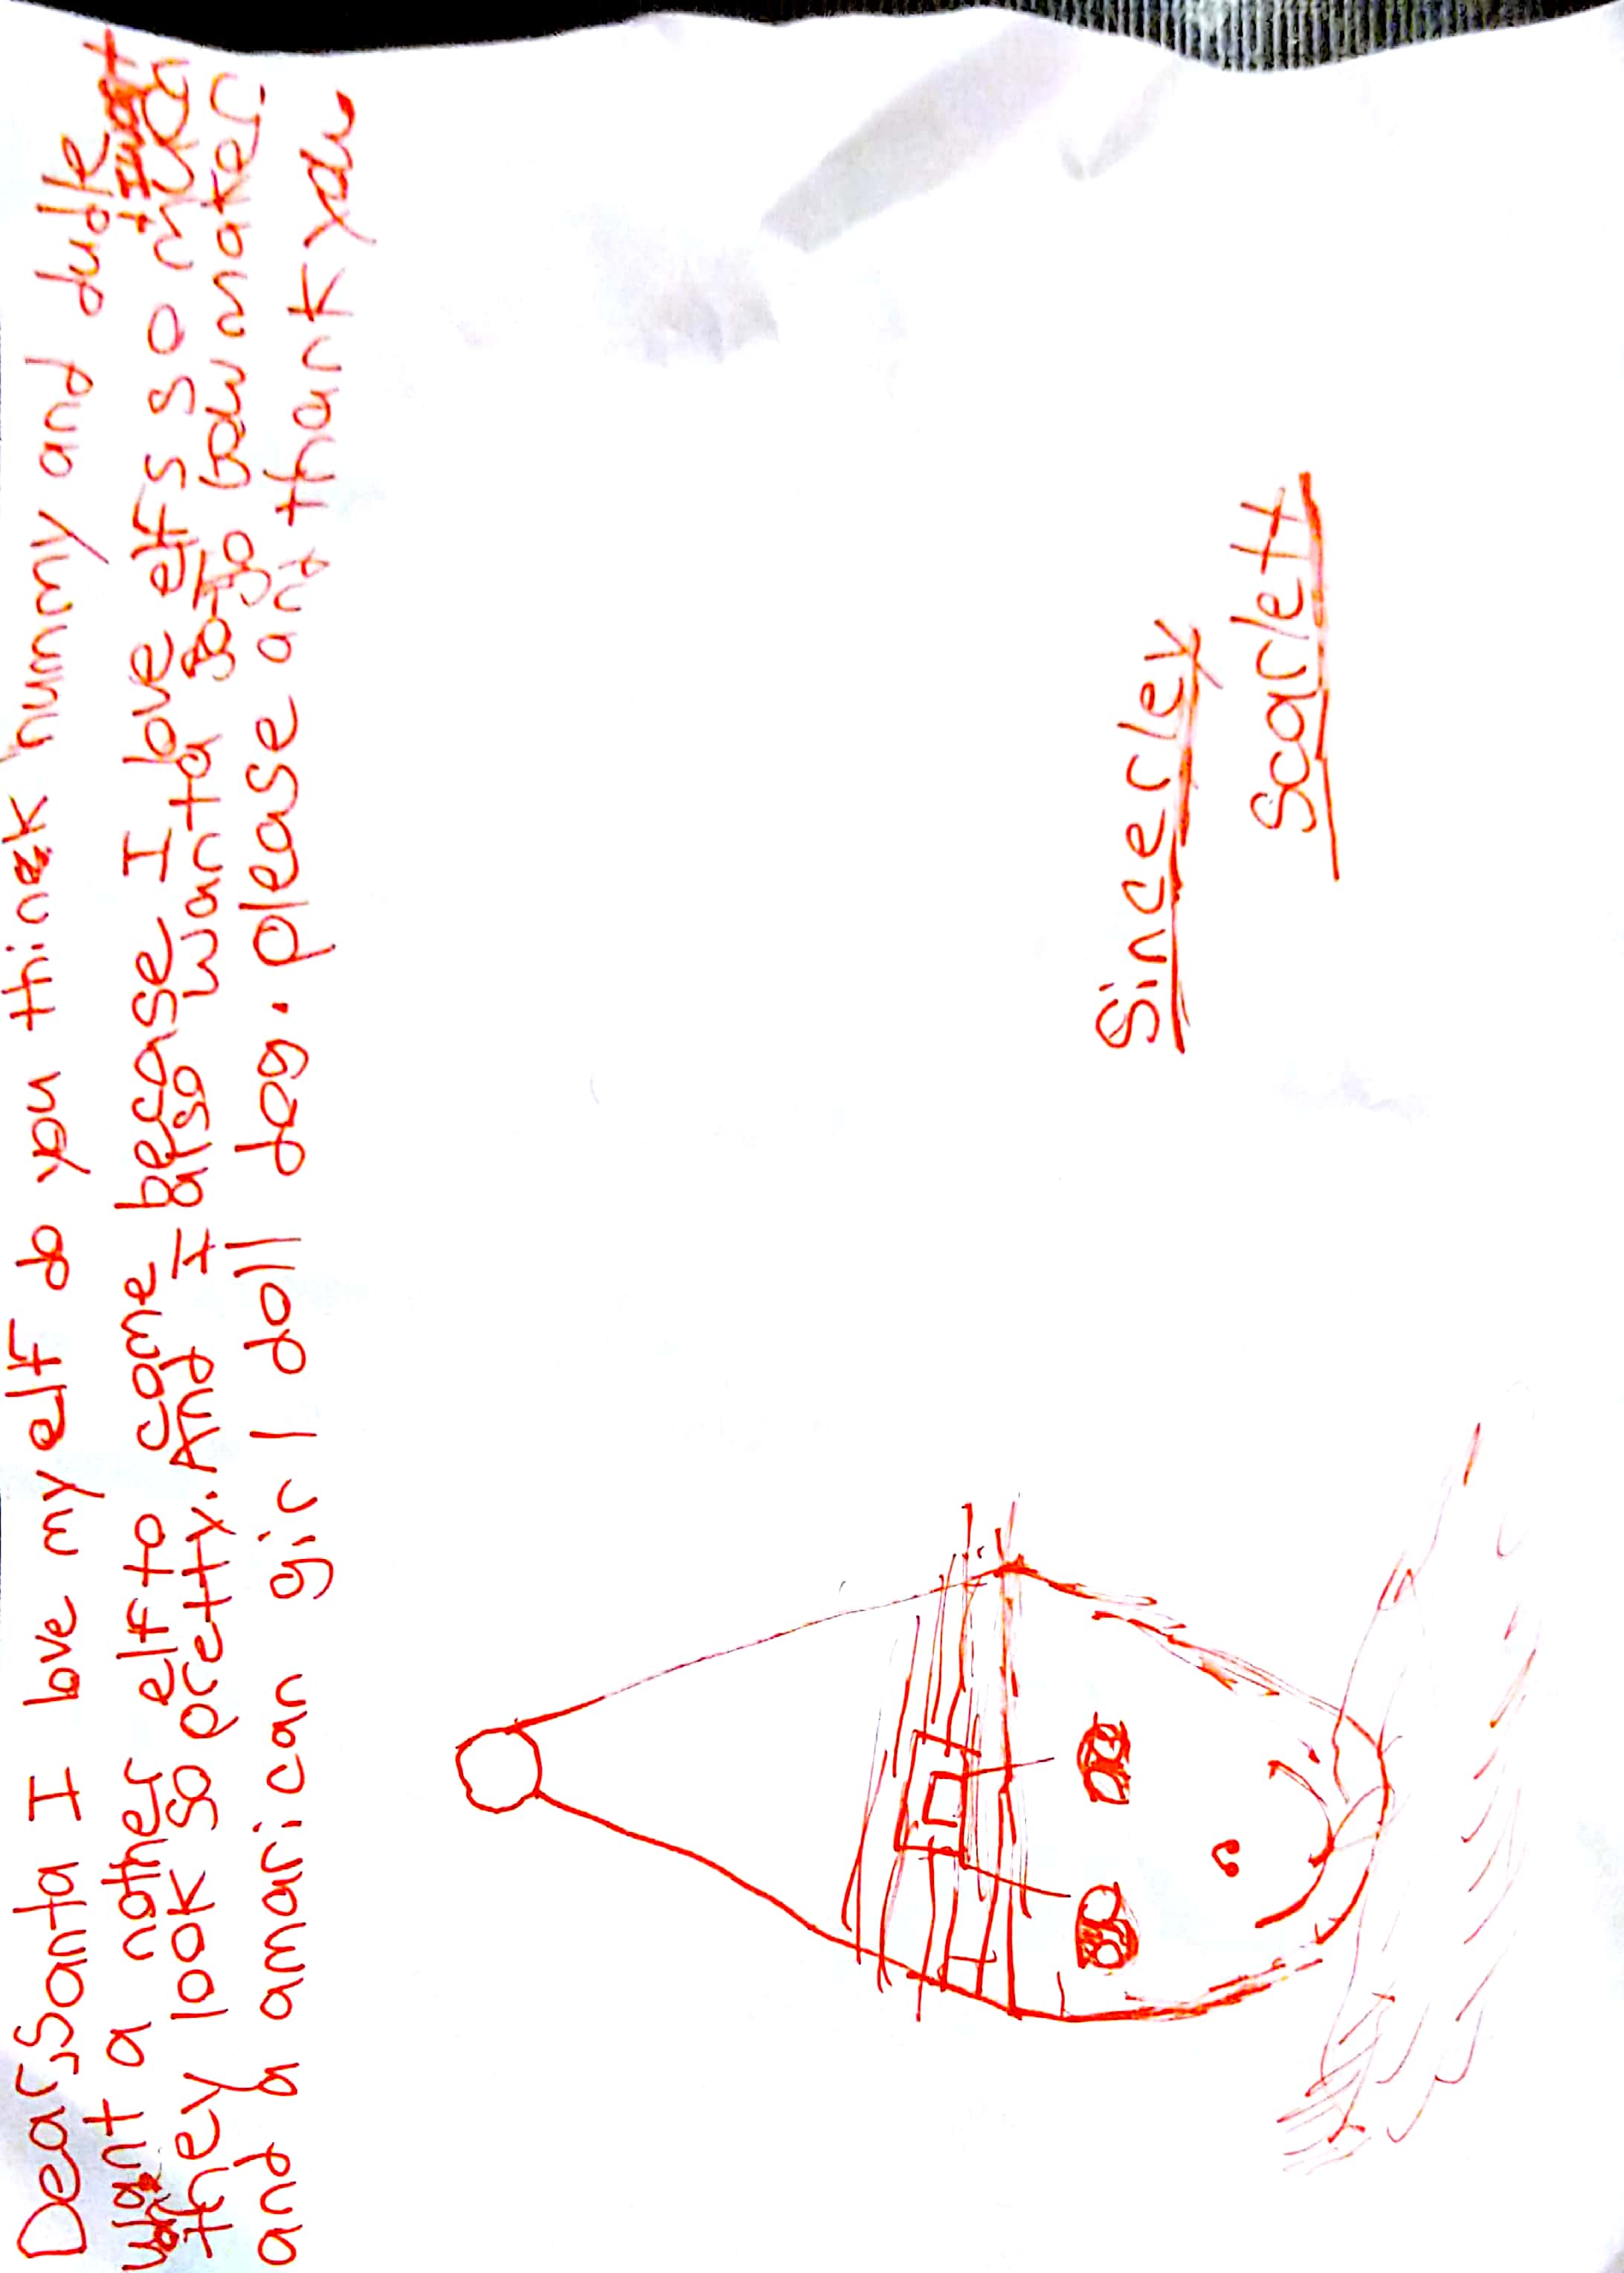 Dear Santa I love my elf do you think nummy and dudk
want a nother elf to come becase I love elfs so
they look so prettx. And I also want a Jo Jo bow maker
and a amarican girl doll dog. please and thank you
Sinecley
Scarlett